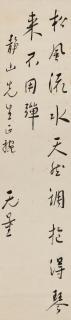 松風流水天然調抱得琴
来不用彈
静山先生正撰
无量